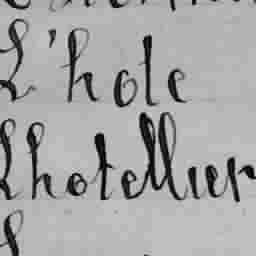 L'hote
Lhotellier